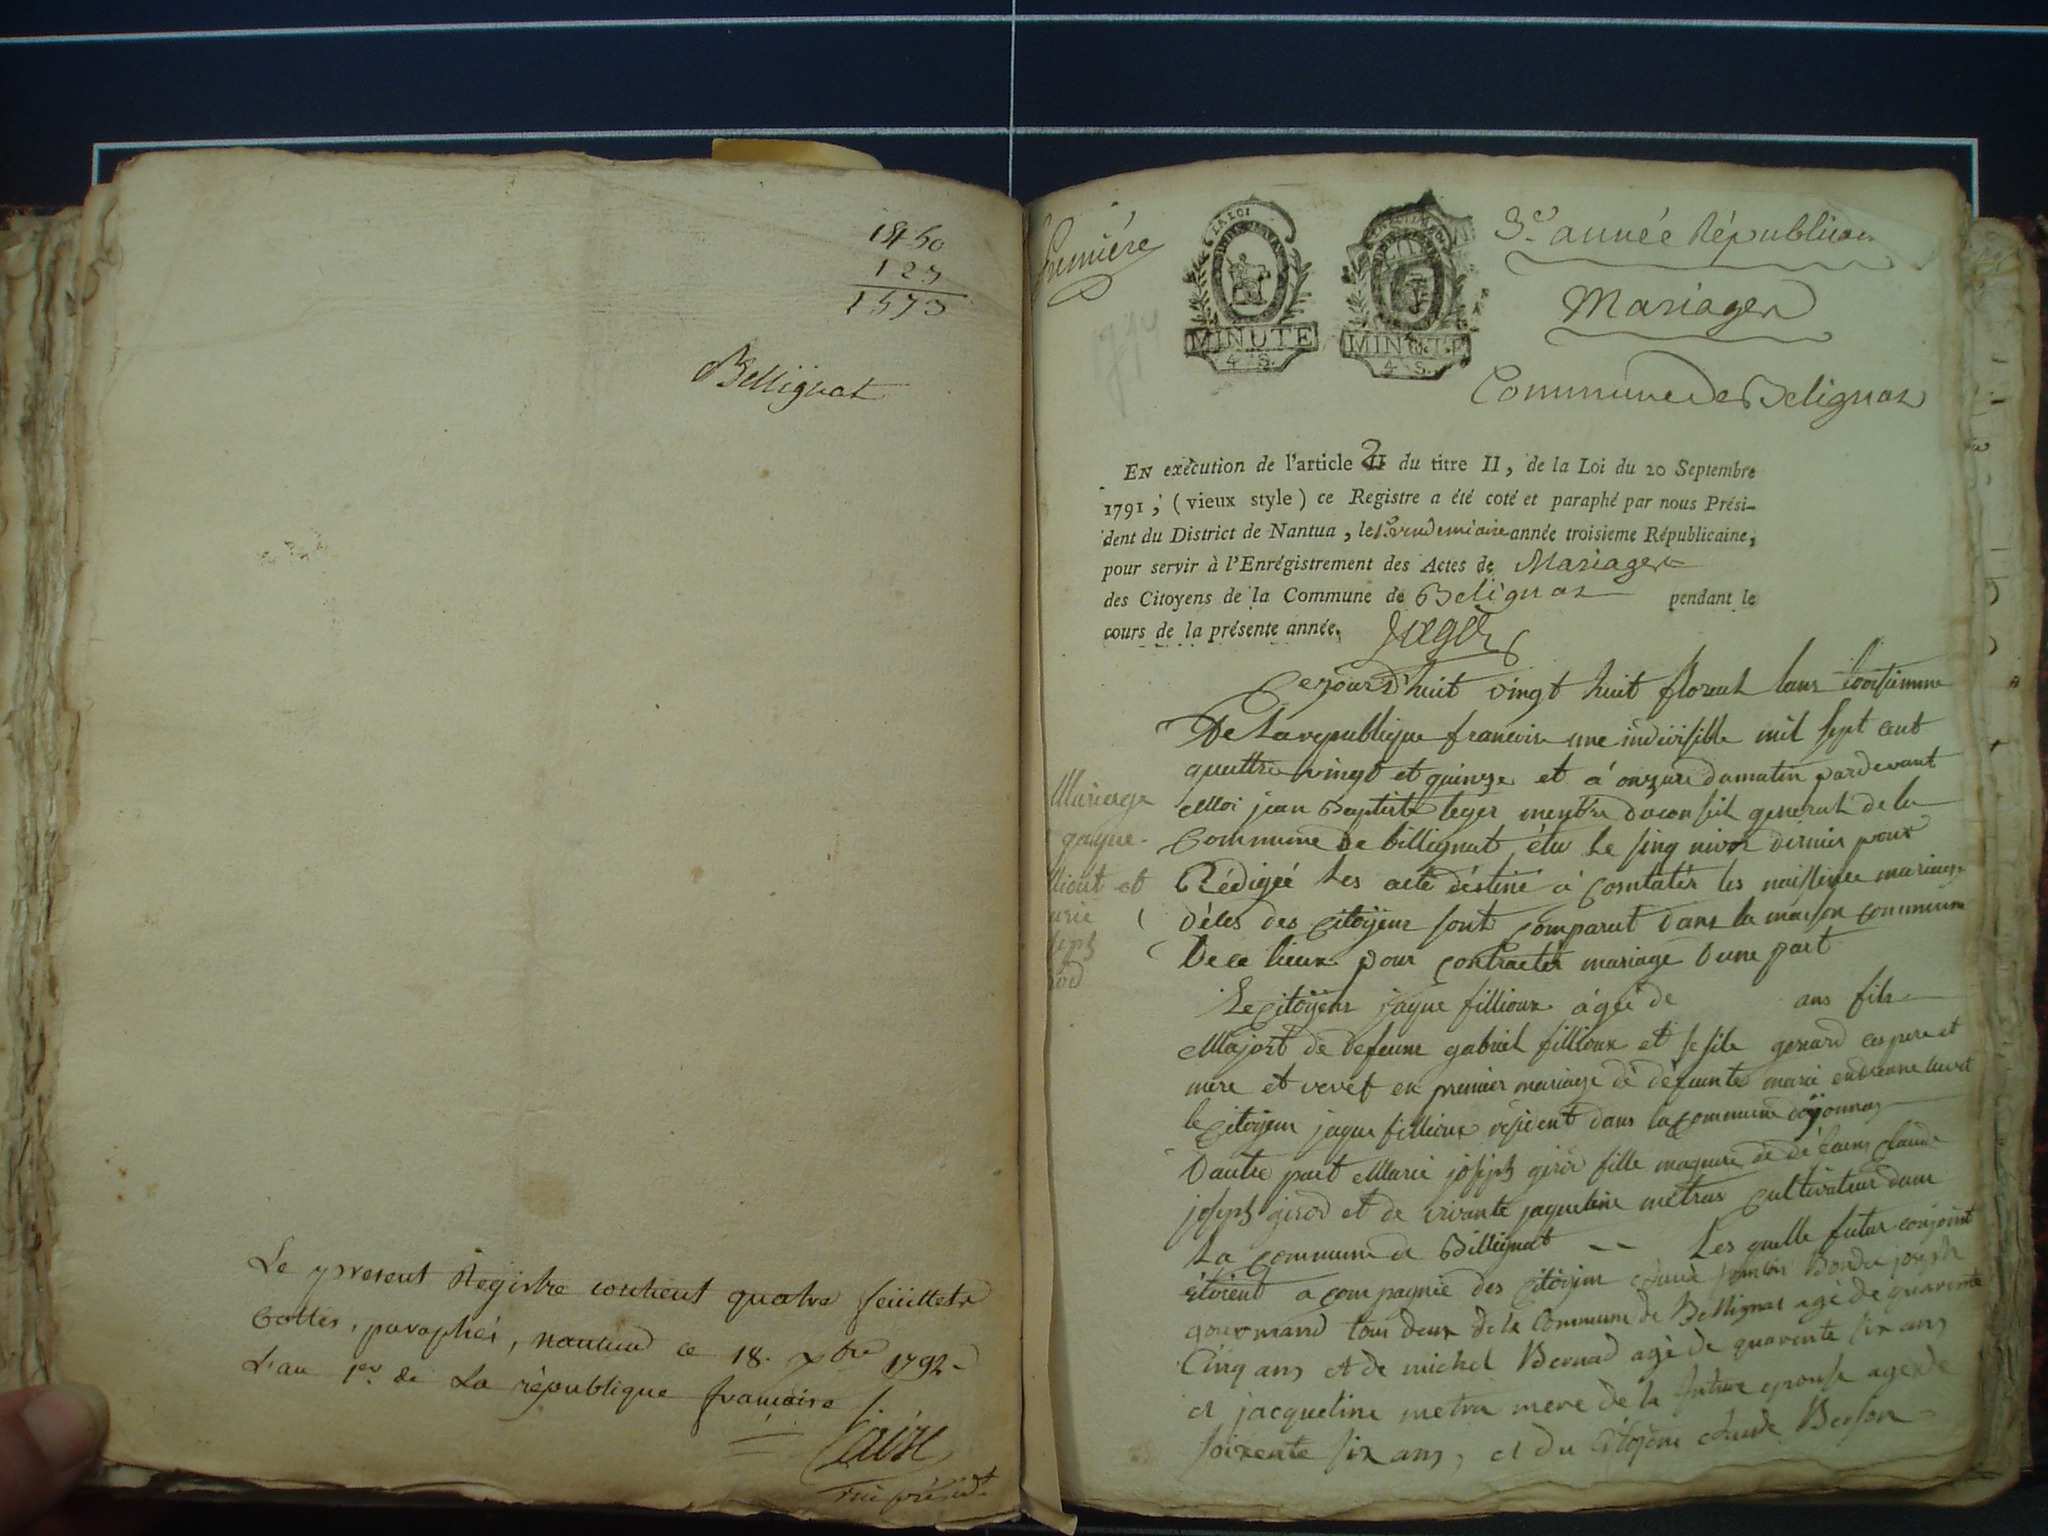 1450
123
1573
Bellignat
Le present Registre contient quatre feüillets
Cottés, paraphés, nantua ce 18. xbre 1792
L'an 1er de La république françaire
vice président
première
LA LOI
MINUTE
4 S.
MINUTE
4 S.
3e année Républicaine
Mariages
Commune de Belignat
EN exécution de l'article 2 du titre II, de la Loi du 20 Septembre
1791; (vieux style) ce Registre a été coté et paraphé par nous Prési-
dent du District de Nantua, le 1er vendemiaire année troisieme Républicaine,
pour servir à l'Enrégistrement des Actes de Mariages
des Citoyens de la Commune de Belignat pendant le
cours de la présente année.
Cejourd'huit vingt huit floreal lans troisiemme
De La republique francoise une indivisible mil sept cent
quattre vingt et quinze et a onzure dumatin pardevant
Moi jean Baptiste leger menbre du conseil general de la
Commune de billignat élu le sinq nivos dernier pour
Rédigée les acte déstiné à constatér les naissence mariage
déces des Citoÿens sont comparut dans la maison commune
De ce lieux pour contracter mariage dune part
Le Citoÿens jaque fillioux ágée de ans fils
Majort de defeunt gabriel fillioux et sesile genard ces pere et
mere et vevef en premier mariage de defeunte marie
le Citoyens jaque fillioux resident dans la commune doÿonnas
Dautre part Marie joseph girod fille majeure de
joseph girod et de vivante jaqueline metras cultivateur dans
La commune de Billignat -- Les quelle futur conjoint
étoient acompagnie des Citoÿens joseph
gourmand tous deux de la commune de Bellignat agé de quarente
Cinq ans et de michel Bernad agé de quarente six ans
et jacqueline metra mere de la future epouse agee de
soixente six ans, et du Citoÿens claude
Mariage
jaque
fillioux et
marie
joseph
girod